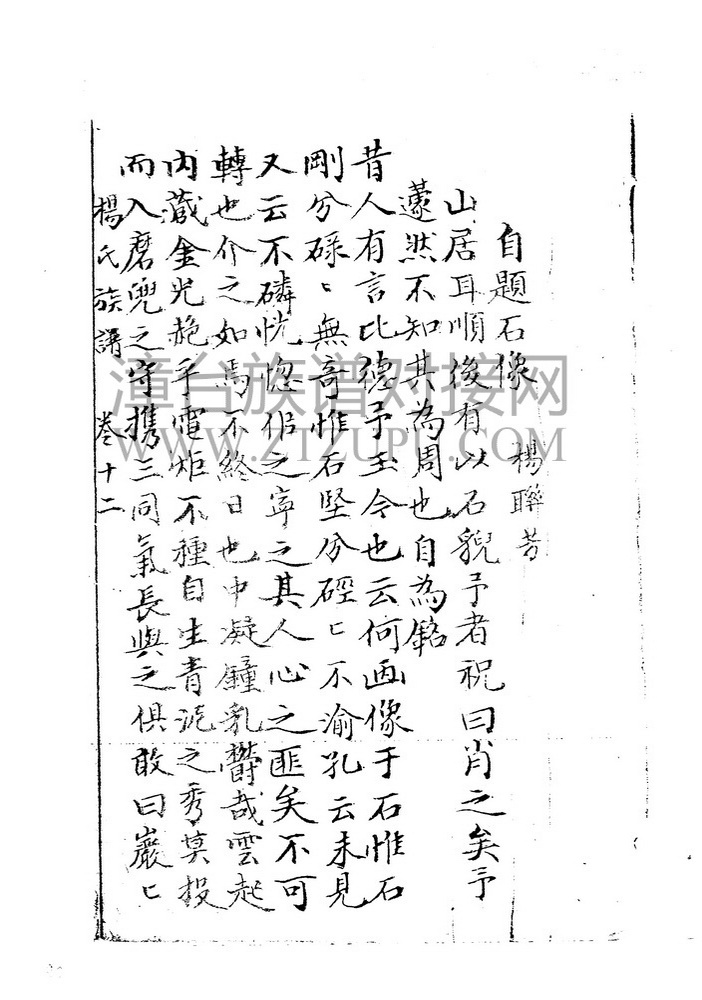 自題石像 楊聯芳
山居耳順後有以石貌予者祝曰肖之矣予
蘧然不知其為周也自為銘
昔人有言比德予玉今也云何画像于石惟石
剛兮碌〻無奇惟石堅兮硜〻不渝孔云未見
又云不磷恍惚佀之寧之其人心之匪矣不可
轉也介之如焉不終日也中凝鐘乳鬱哉雲起
内藏金光艶乎電炬不種自生青泥之秀莫投
而入磨兜之守携三同氣長與之俱敢曰巖〻
楊氏族譜 卷十二
漳台族谱对接网
WWW.ZTZUPU.COM